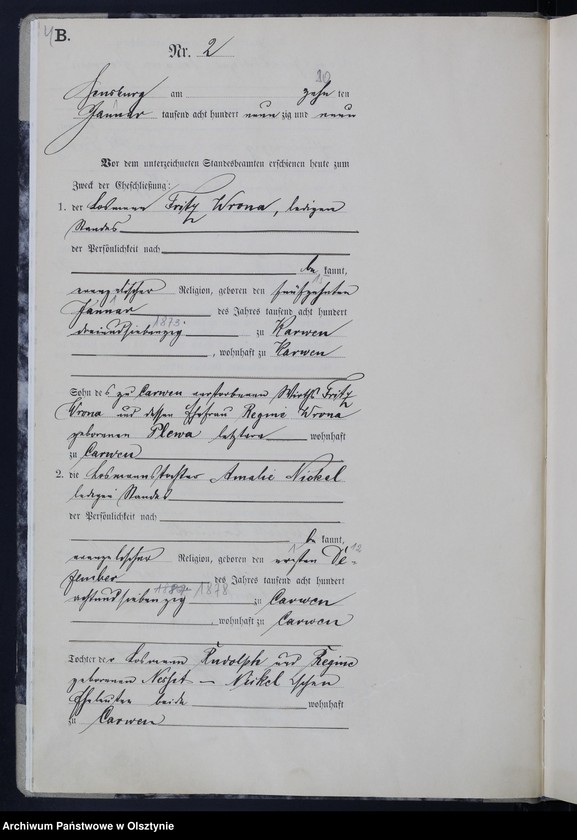 4 B.
Nr. 2
10
Sensburg am zehn ten
Januar tausend acht hundert neun zig und neun
Vor dem unterzeichneten Standesbeamten erschienen heute zum
Zweck der Eheschließung:
1. der Losmann Fritz Wrona, ledigen
Standes
der Persönlichkeit nach
be kannt,
15
evangelischer Religion, geboren den fünfzehnten
Januar 1 des Jahres tausend acht hundert
1873.
dreiundsiebenzig zu Karwen
, wohnhaft zu Karwen
Sohn des zu Carwen verstorbenen Wirths Fritz
Wrona und dessen Ehefrau Regine Wrona
geborenen Plewa letztere wohnhaft
zu Carwen
2. die Losmannstochter Amalie Nickel
ledigen Standes
der Persönlichkeit nach
be kannt,
1 12
evangelischer Religion, geboren den ersten De-
zember des Jahres tausend acht hundert
1878
achtundsiebenzig zu Carwen
, wohnhaft zu Carwen
Tochter der Losmann Rudolph und Regine
geborenen - Nickel'schen
Eheleute beide wohnhaft
zu Carwen
Archiwum Państwowe w Olsztynie